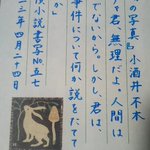 の写真』小酒井不木
や君、無理だよ、人間は
でないから。しかし、君は、
事件について何か説をたてて
か」
小説書写 No.五七
一三年四月二十四日